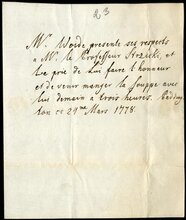 23
Mr. Woide presente ses respects
à Mr. le Professeur et
Le prie de Lui faire l'honneur
et de venir manger la Souppe avec
lui demain à trois heures.
ton ce 29me Mars 1778